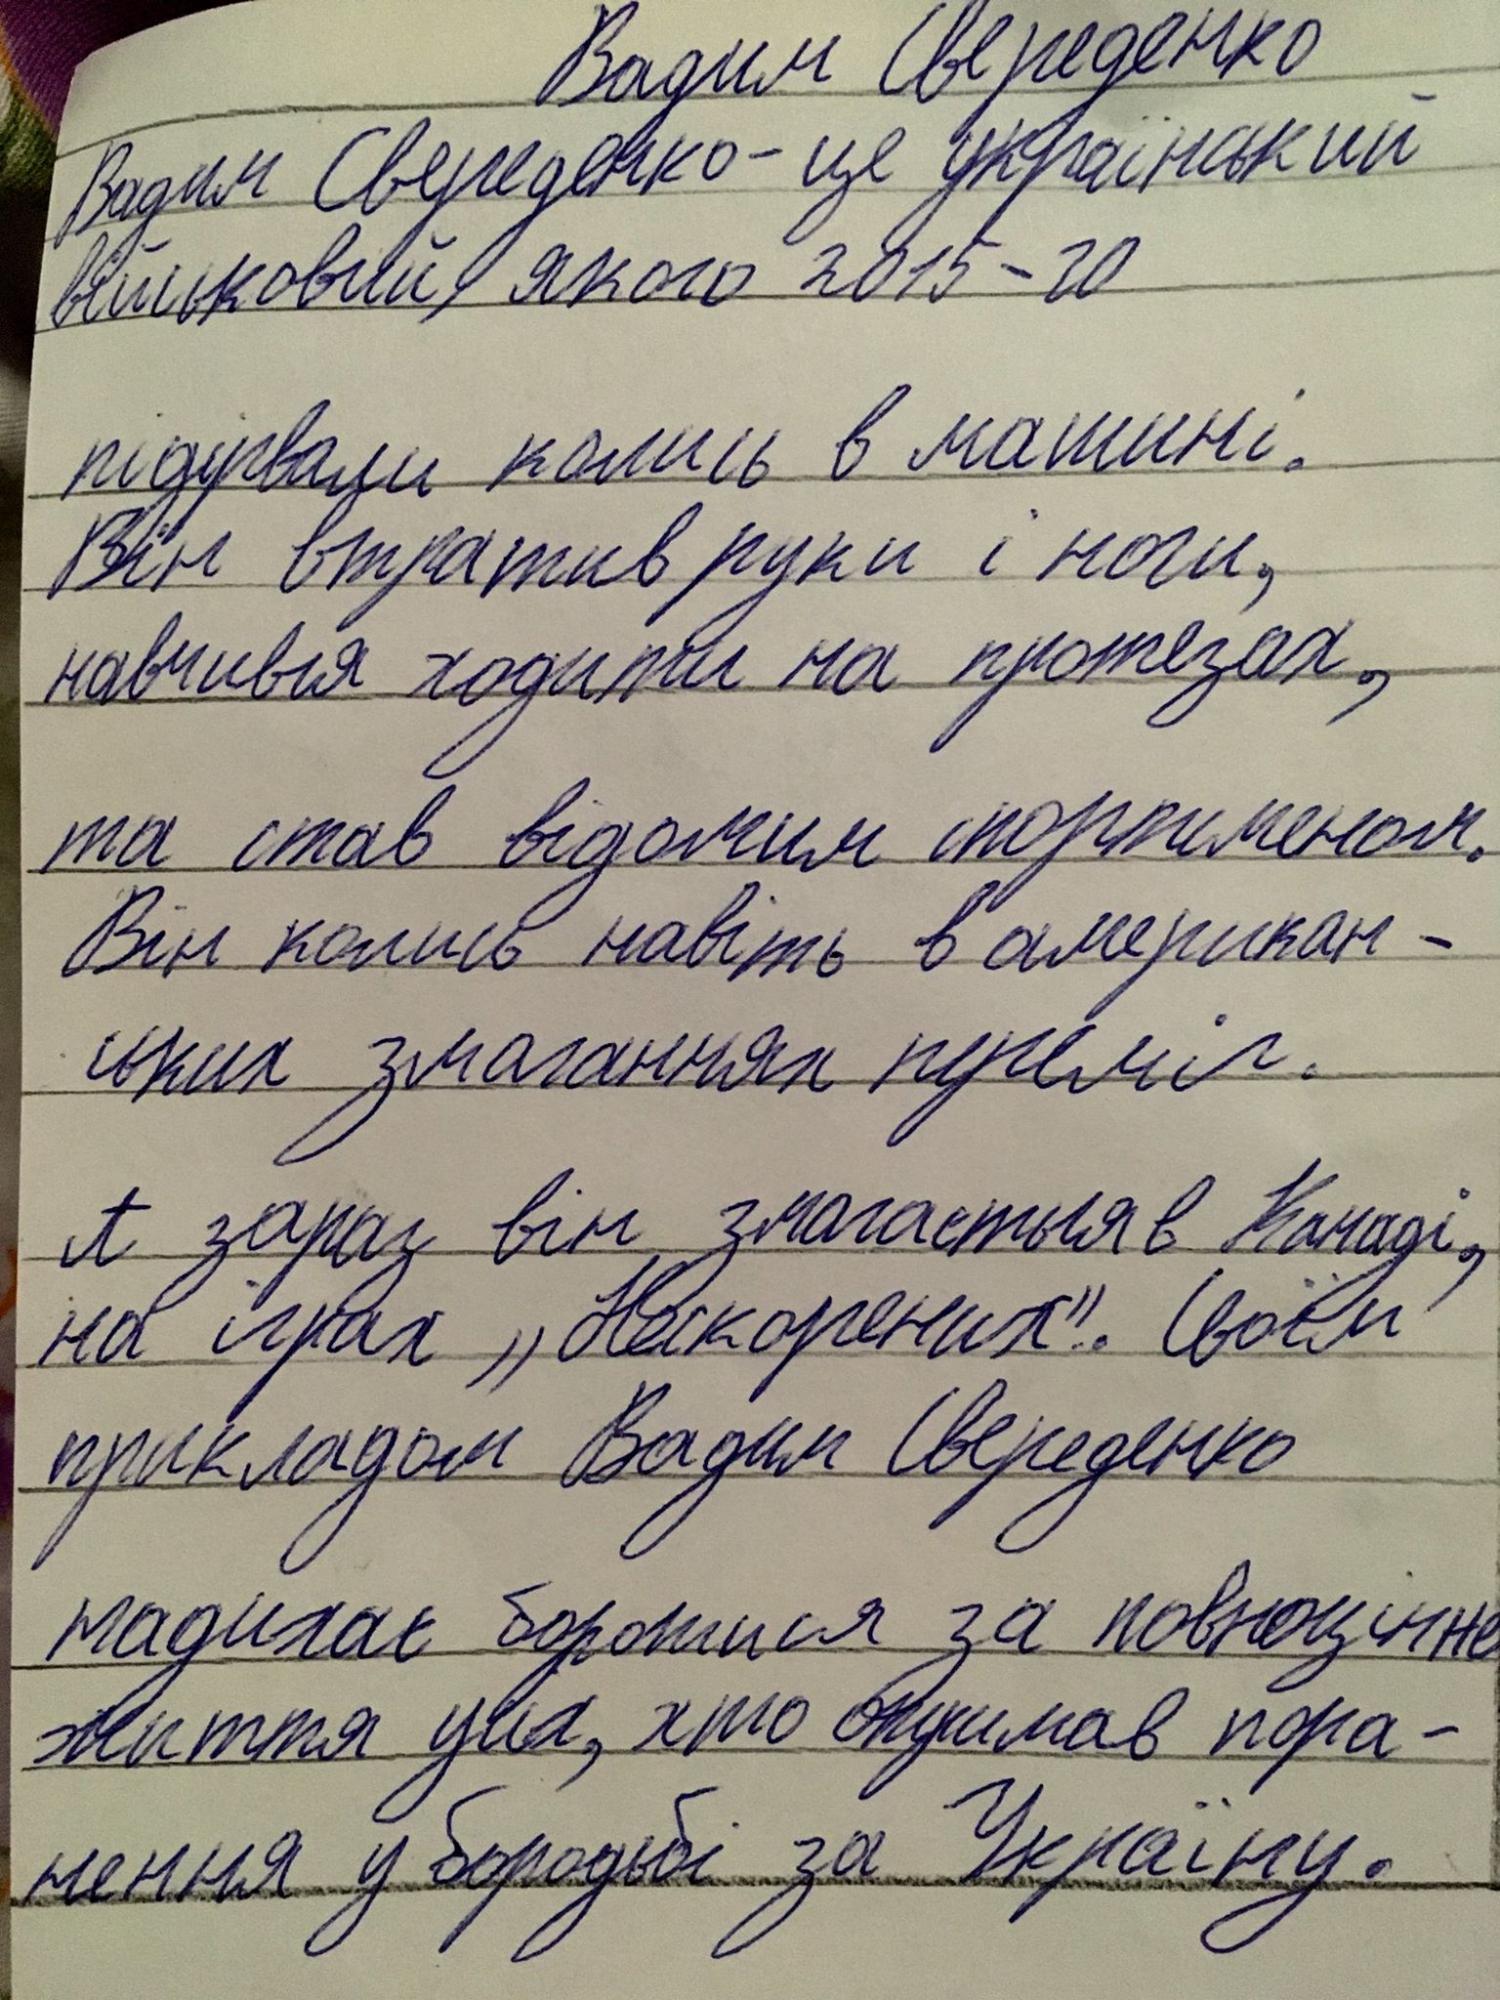 Вадим Свереденко
Вадим Свереденко - це український
військовий, якого 2015-го
підірвали колись в машині.
Він втратив руки і ноги,
навчився ходити на протезах,
та став відомим спортсменом.
Він колись навіть в американ-
ських змаганнях переміг.
А зараз він змагається в Канаді,
на іграх „Нескорених". Своїм
прикладом Вадим Свереденко
надихає боротися за повноцінне
життя усіх, хто отримав пора-
нення у боротьбі за Україну.